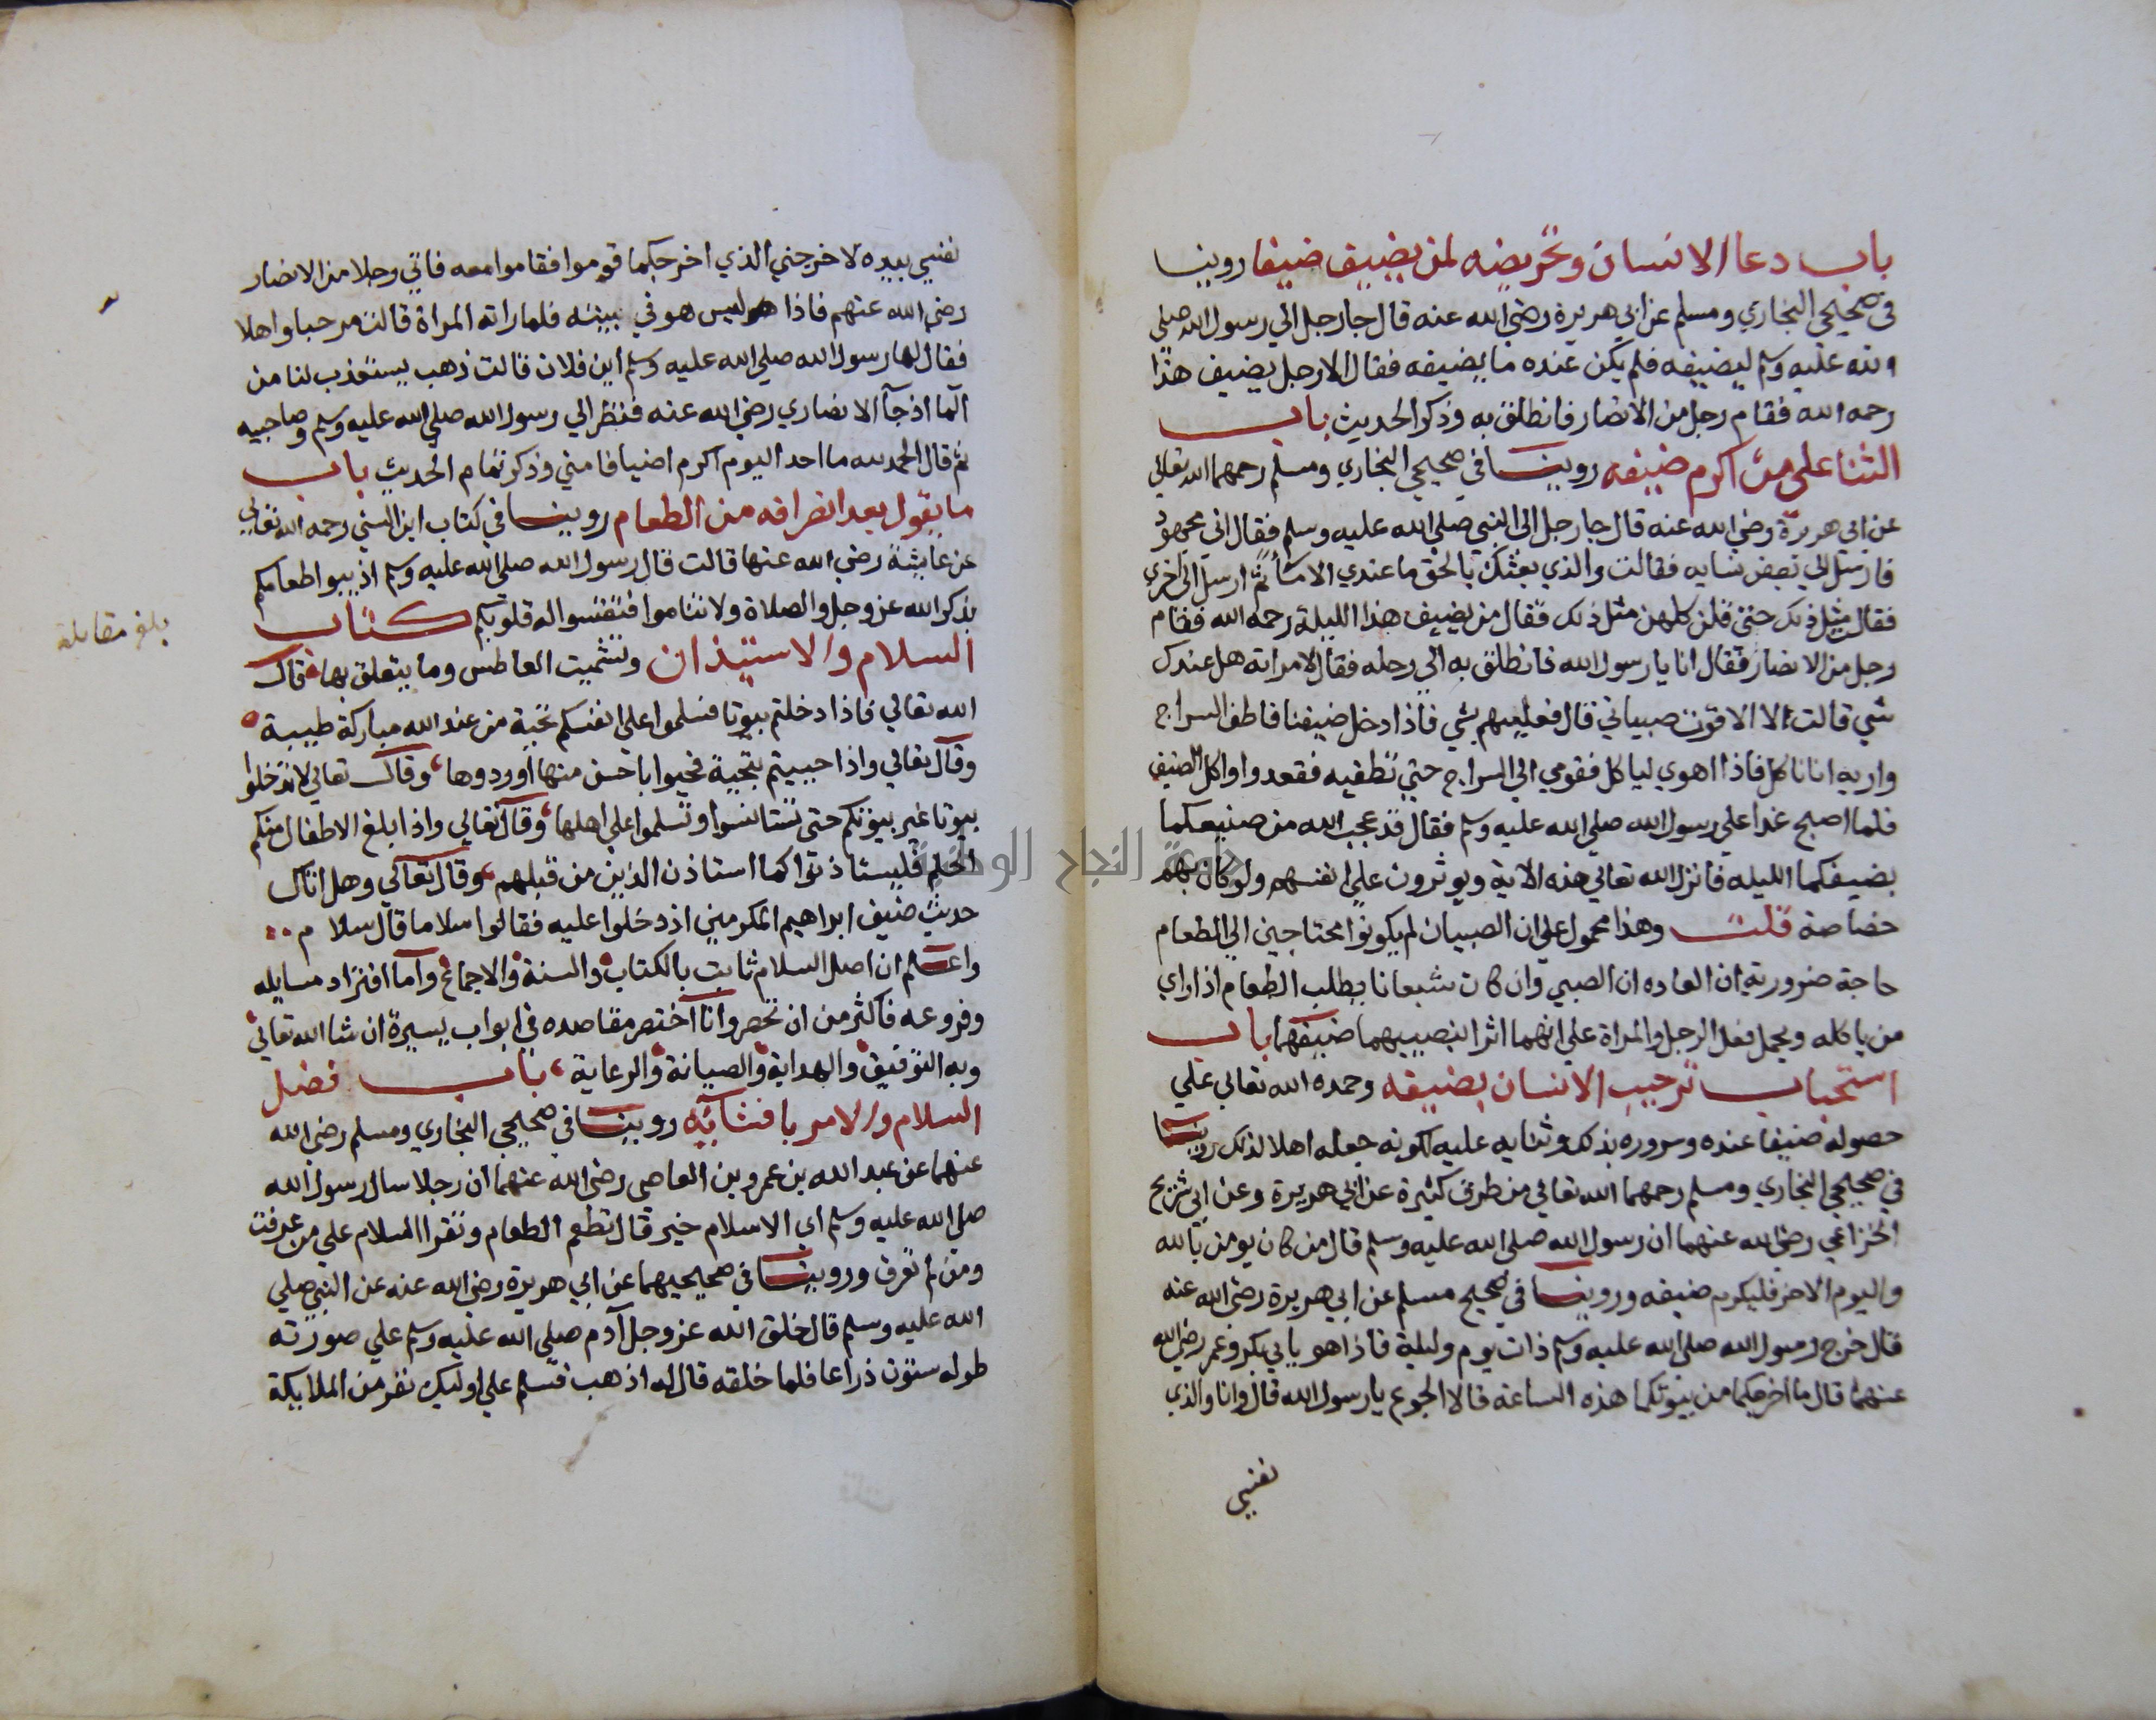 باب دعا الانسان وتحريضه لمن يضيف ضيفا روينا
في صحيحي البخاري ومسلم عن ابي هريرة رضي الله عنه قال جا رجل الي رسول الله صلي
الله عليه وسلم ليضيفه فلم يكن عنده ما يضيفه فقال الا رجل يضيف هذا
رحمه الله فقام رجل من الانصار فانطلق به وذكر الحديث باب
الثنا علي من اكرم ضيفه روينا في صحيحي البخاري ومسلم رحمهما الله تعالي
عن ابي هريرة رضي الله عنه قال جا رجل الي النبي صلي الله عليه وسلم فقال اني مجهود
فارسل الي بعض نسايه فقالت والذي بعثك بالحق ما عندي الا مآ ثم ارسل الي اخري
فقال مثل ذلك حتي قلن كلهن مثل ذلك فقال من يضيف هذا الليلة رحمه الله فقام
رجل من الانصار فقال انا يا رسول الله فانطلق به الي رحله فقال لامراته هل عندك
شي قالت لا الا قوت صبياني قال فعليهم بشي فاذا دخل ضيفنا فاطف السراج
واريه انا ناكل فاذا اهوي لياكل فقومي الي السراج حتي تطفيه فقعدوا واكل الضيف
فلما اصبح غدا علي رسول الله صلي الله عليه وسلم فقال قد عجب الله من صنيعكما
بضيفكما الليله فانزل الله تعالي هذه الاية ويوثرون علي انفسهم ولو كان بهم
خصاصة قلت وهذا محمول علي ان الصبيان لم يكونوا محتاجين الي الطعام
حاجة ضرورية ان العاده ان الصبي وان كان شبعانا يطلب الطعام اذا راي
من ياكله ويحمل فعل الرجل والمراة علي انهما اثرا بنصيبهما ضيفهما باب
استحباب ترحيب الانسان بضيفه وحمده الله تعالي علي
حصوله ضيفا عنده وسروره بذلك وثنايه عليه لكونه جعله اهلا لذلك روينا
في صحيحي البخاري ومسلم رحمهما الله تعالي من طرق كثيرة عن ابي هريرة وعن ابي شريح
الخزاعي رضي الله عنهما ان رسول الله صلي الله عليه وسلم قال من كان يومن بالله
واليوم الاخر فليكرم ضيفه وروينا في صحيح مسلم عن ابي هريرة رضي الله عنه
قال خرج رسول الله صلي الله عليه وسلم ذات يوم وليلة فاذا هو بابي بكر وعمر رضي الله
عنهما قال ما اخرجكما من بيوتكما هذه الساعة قالا الجوع يا رسول الله قال وانا والذي
نفسي
نفسي بيده لاخرجني الذي اخرجكما قوموا فقاموا معه فاتي رجلا من الانصار
رضي الله عنهم فاذا هو ليس هو في بيته فلما راته المراة قالت مرحبا واهلا
فقال لها رسول الله صلي الله عليه وسلم اين فلان قالت ذهب يستعذب لنا من
الما اذ جآ الانصاري رضي الله عنه فنظر الي رسول الله صلي الله عليه وسلم وصاحبيه
ثم قال الحمد لله ما احد اليوم اكرم اضيافا مني وذكر تمام الحديث باب
ما يقول بعد انصرافه من الطعام روينا في كتاب ابن السني رحمه الله تعالي
عن عايشة رضي الله عنها قالت قال رسول الله صلي الله عليه وسلم اذيبوا طعامكم
بذكر الله عز وجل والصلاة ولا تناموا فتقسوا له قلوبكم كتاب
السلام والاستيذان وتشميت العاطس وما يتعلق بها قال
الله تعالي فاذا دخلتم بيوتا فسلموا علي انفسكم تحية من عند الله مباركة طيبة
وقال تعالي واذا حييتم بتحية فحيوا باحسن منها او ردوها وقال تعالي لا تدخلوا
بيوتا غير بيوتكم حتي تستانسوا وتسلموا علي اهلها وقال تعالي واذا بلغ الاطفال منكم
الحلم فليستاذنوا كما استاذن الذين من قبلهم وقال تعالي وهل اتاك
حديث ضيف ابراهيم المكرمين اذ دخلوا عليه فقالوا سلاما قال سلام
واعلم ان اصل السلام ثابت بالكتاب والسنة والاجماع واما افراد مسايله
وفروعه فاكثر من ان تحصر وانا اختصر مقاصده في ابواب يسيرة ان شا الله تعالي
وبه التوفيق والهداية والصيانة والرعاية باب فضل
السلام والامر بافشايه روينا في صحيحي البخاري ومسلم رضي الله
عنهما عن عبد الله بن عمرو بن العاصي رضي الله عنهما ان رجلا سال رسول الله
صلي الله عليه وسلم اي الاسلام خير قال تطعم الطعام وتقرا السلام علي من عرفت
ومن لم تعرف وروينا في صحيحيهما عن ابي هريرة رضي الله عنه عن النبي صلي
الله عليه وسلم قال خلق الله عز وجل آدم صلي الله عليه وسلم علي صورته
طوله ستون ذراعا فلما خلقه قال له اذهب فسلم علي اوليك نفر من الملايكة
بلغ مقابلة
جامعة النجاح الوطنية